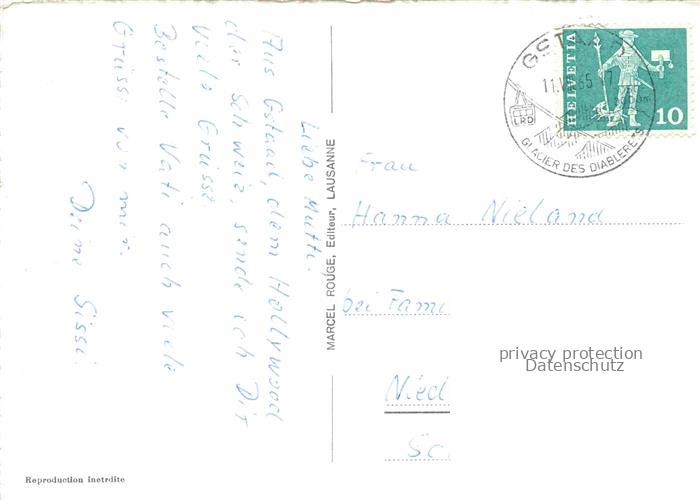 Liebe Mutti,
Aus Gstaad, dem Hollywood
der Schweiz, sende ich Dir
viele Grüsse.
Bestelle Vati auch viele
Grüsse von mir.
Deine Sissi.
MARCEL ROUGE, Editeur, LAUSANNE
Reproduction inetrdite
GSTAAD
11. 65
LRD
3000 m
GLACIER DES DIABLERETS
HELVETIA
10
Frau
Hanna Nieland
bei Fami
Nied
Sc
privacy protection
Datenschutz